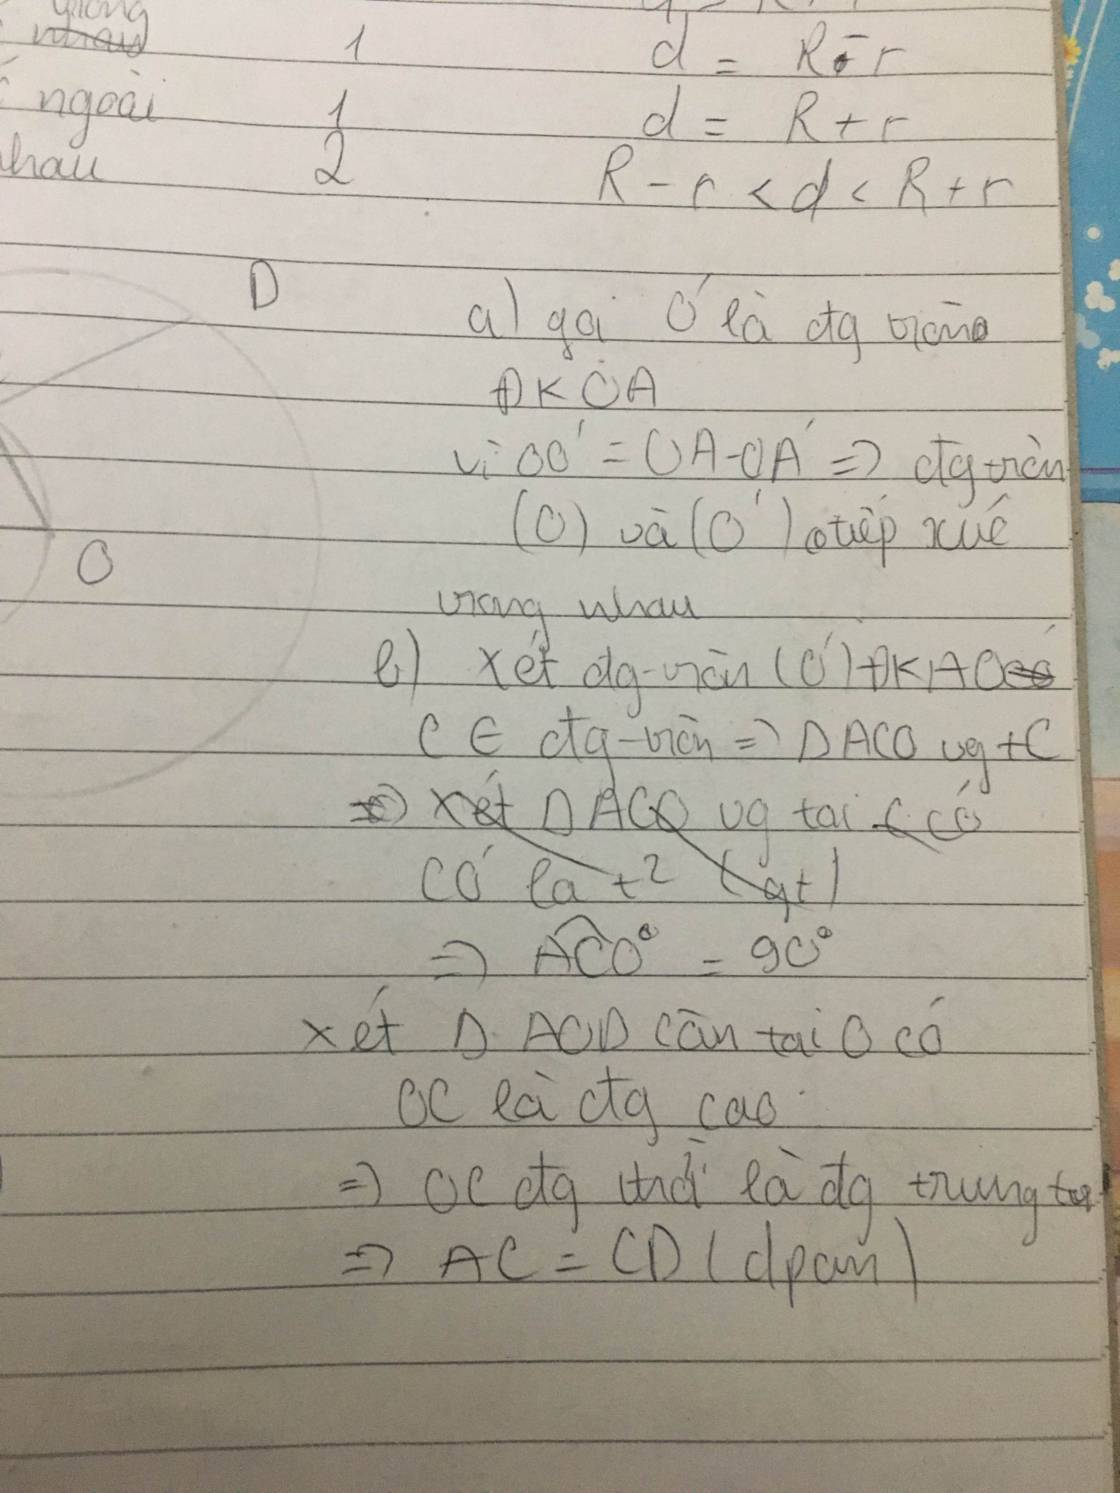 trong
nhau 1 d = R - r
ngoài 1 d = R + r
nhau 2 R - r < d < R + r
D
a) gọi O' là đg tròn
ĐK OA
Vì OO' = OA - O'A => đg tròn
(O) và (O') tiếp xúc
O
trong nhau
b) Xét đg tròn (O') ĐK AO có
C ∈ đg tròn => Δ ACO vg t C
=> Xét Δ ACO vg tại C có
CO' là t² (gt)
=> ACO = 90°
Xét Δ AOD cân tại O có
OC là đg cao
=> OC đg thời là đg trung
=> AC = CD (đpcm)